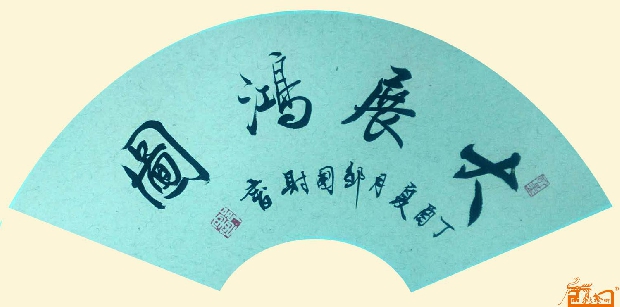 大展鴻圖
丁酉夏月邹国財書